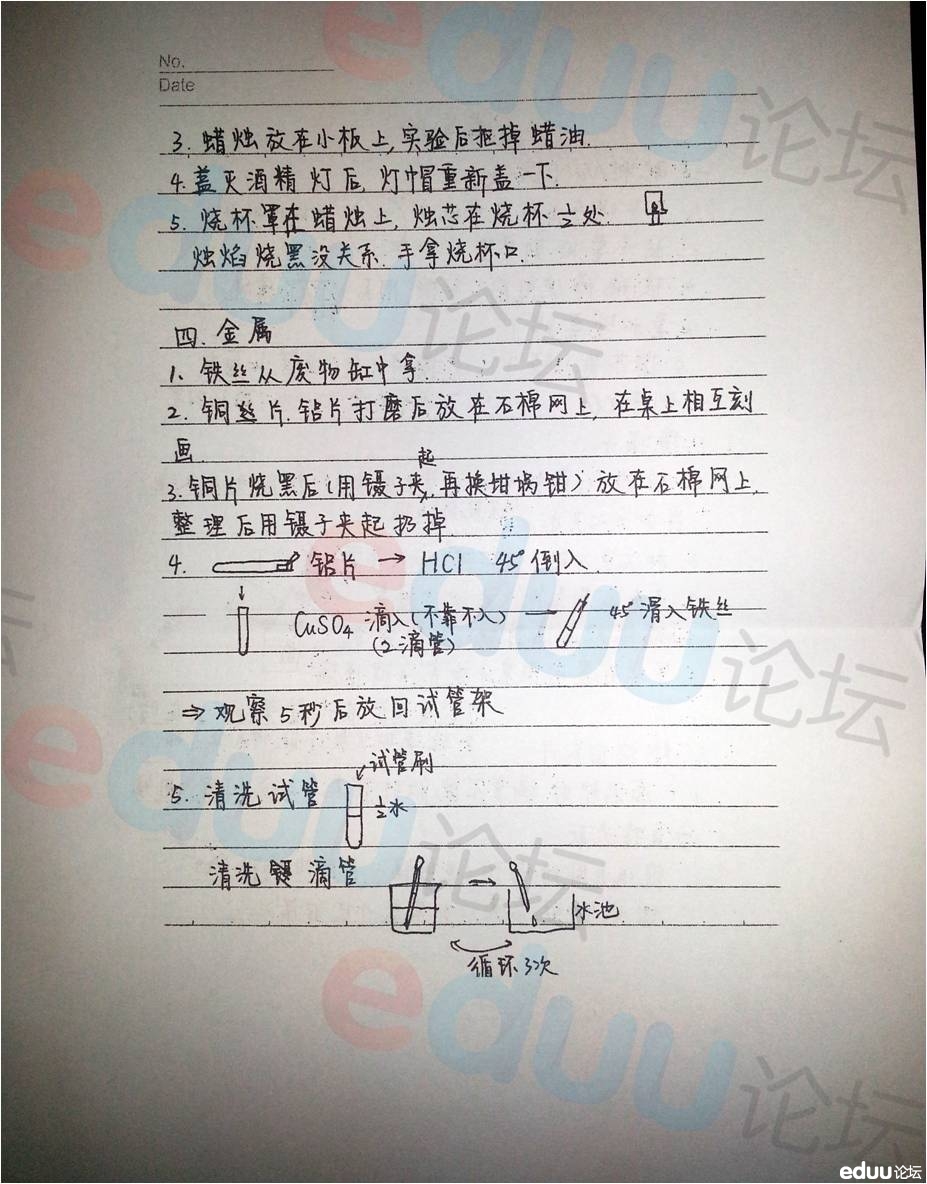 No.
Date
3. 蜡烛放在小板上,实验后抠掉蜡油.
4. 盖灭酒精灯后, 灯帽重新盖一下.
5. 烧杯罩在蜡烛上, 烛芯在烧杯 1/2 处.
烛焰烧黑没关系. 手拿烧杯口.
四. 金属
1、铁丝从废物缸中拿.
2. 铜片. 铝片打磨后放在石棉网上, 在桌上相互刻
画.
3. 铜片烧黑后(用镊子夹起, 再换坩埚钳) 放在石棉网上,
整理后用镊子夹起扔掉.
4. 铝片 → HCl 45° 倒入.
↓ CuSO₄ 滴入(不靠不入) → 45° 滑入铁丝
(2滴管)
⇒ 观察 5 秒后放回试管架
试管刷
5. 清洗试管 1/2 水
清洗 滴管 →
水池
循环3次
eduu论坛
eduu论坛
eduu论坛
eduu论坛
eduu论坛
eduu论坛